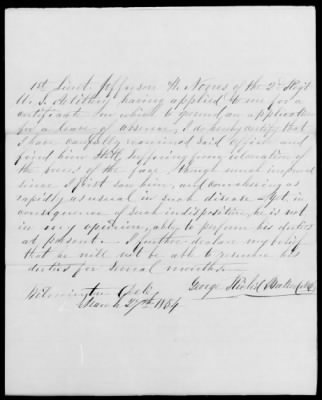 1st Lieut. Jefferson H. Nones of the 2d Regt
U. S. Artillery having applied to me for a
certificate on which to ground an application
for a leave of absence, I do hereby certify that
I have carefully examined said officer and
find him still suffering from of
the bones of the face, though much improved
since I first saw him, and convalescing as
rapidly as usual in such disease. And, in
consequence of such indisposition, he is not
in my opinion, able to perform his duties
at present. I further declare my belief
that he will not be able to resume his
duties for several months.
Wilmington (Del.)
March 27th 1854
George